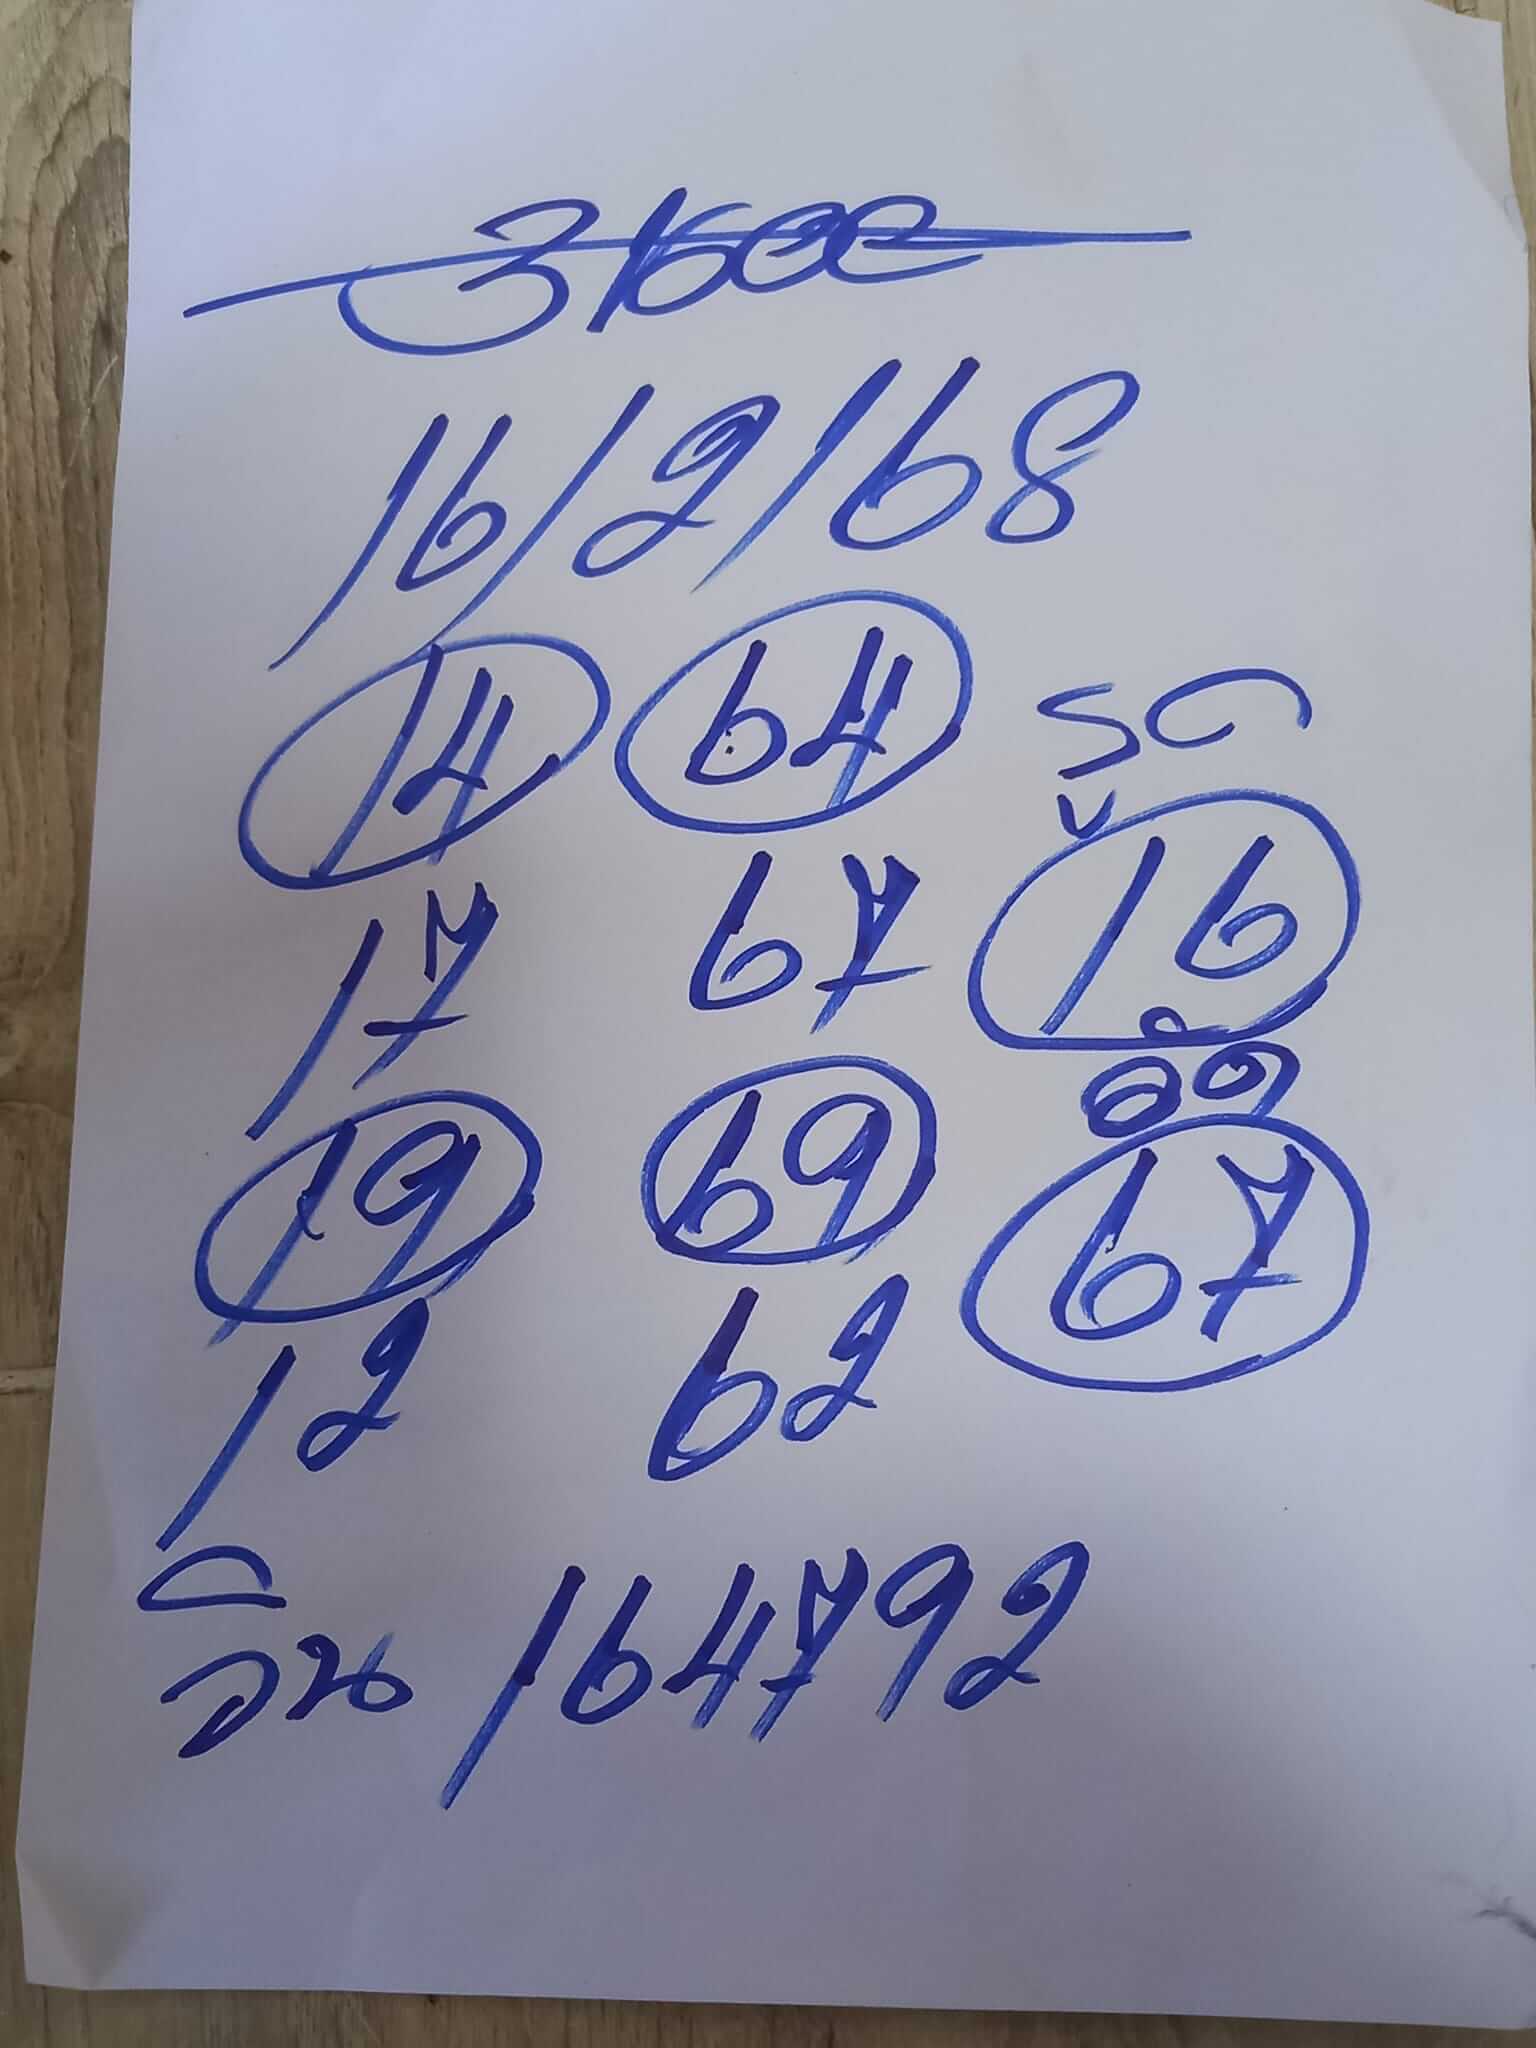 16/2/68
14 64 รูด
17 67 16
19 69 67
12 62
วิน 164792